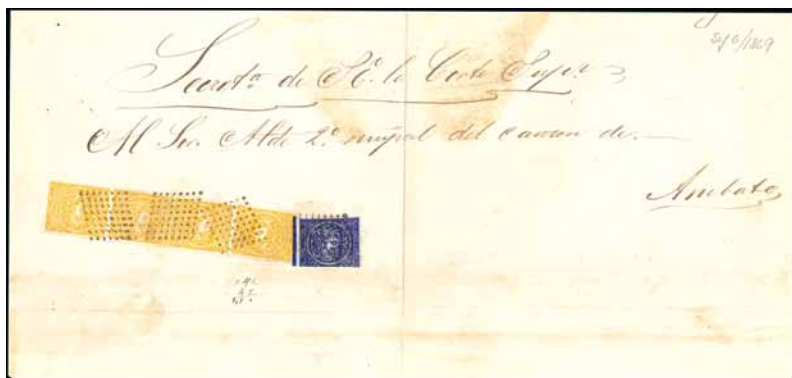 Sep 6/1869
Secreta. de S.E. la Corte Supr.
Al Sr. Alde. 2º. munpal del canton de.—
Ambato